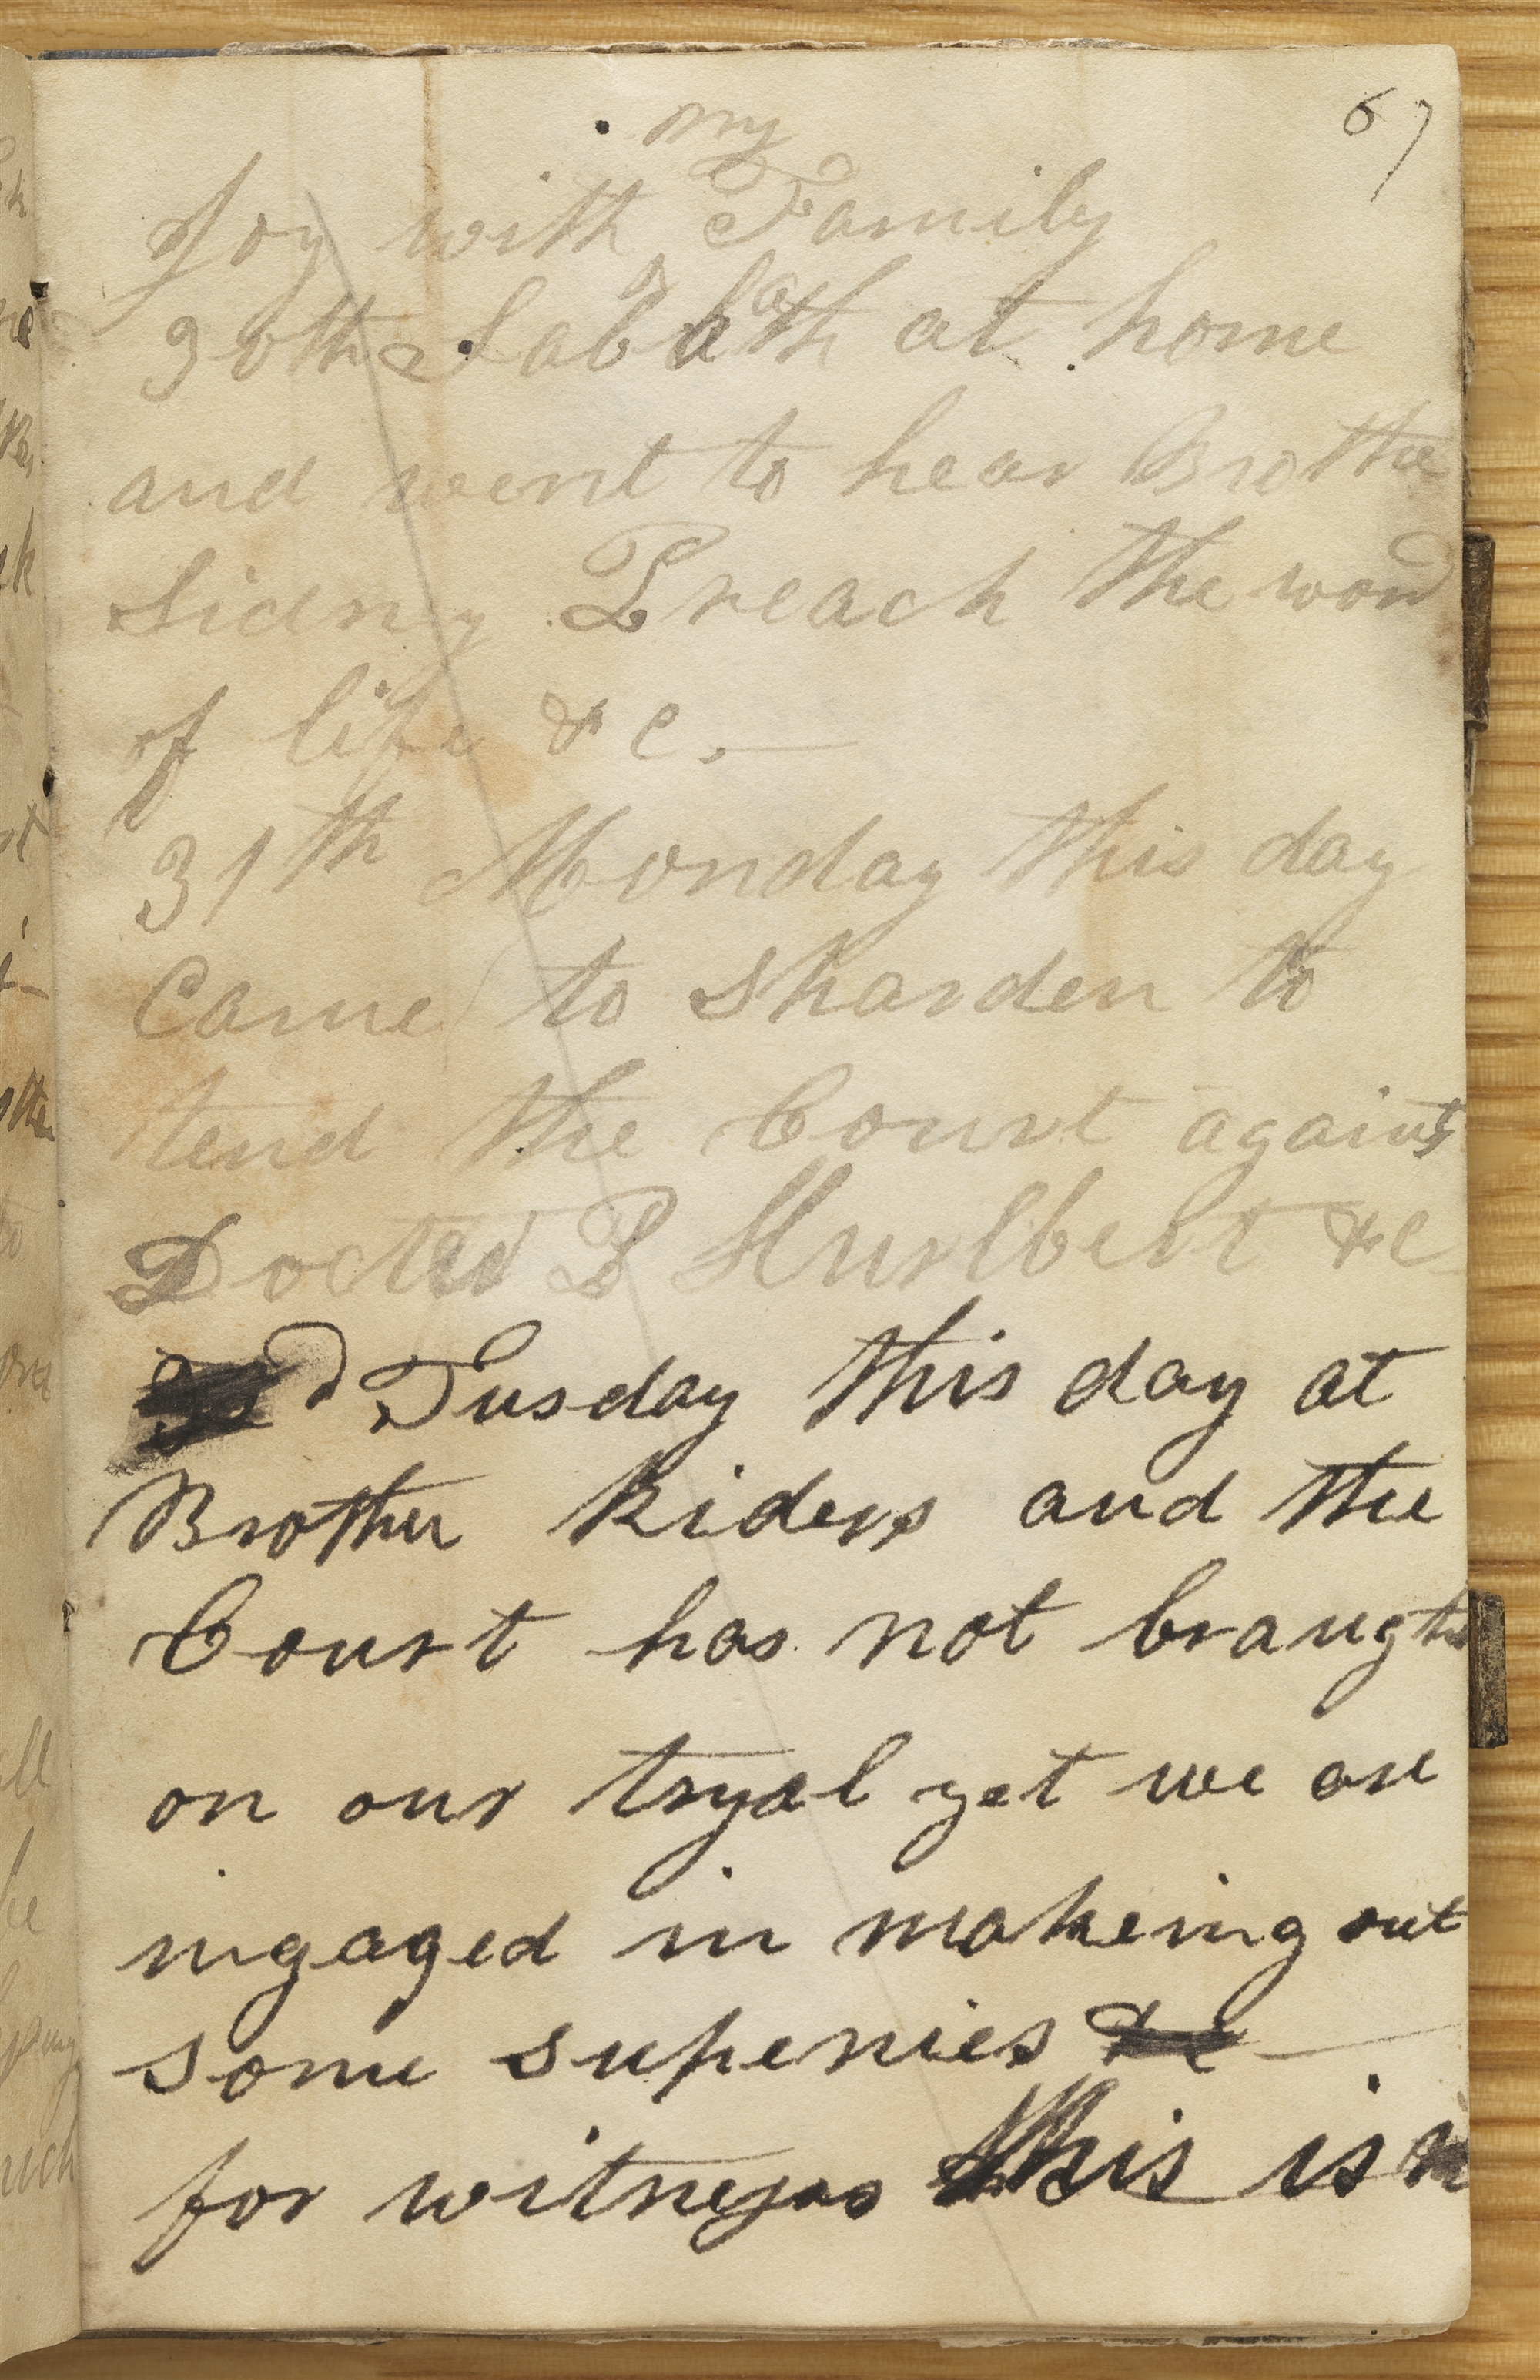 67
Joy with my Family
30th Sabbath at home
and went to hear Brothe
Sidny Preach the word
of life &c.—
31th Monday this day
Came to Sharden to
tend the Court against
Doctor P Hurlbert &c
Tusday this day at
Brother Riders and the
Court has not braught
on our tryal yet we are
ingaged in makeing out
some supenies &c—
for witnesses this is